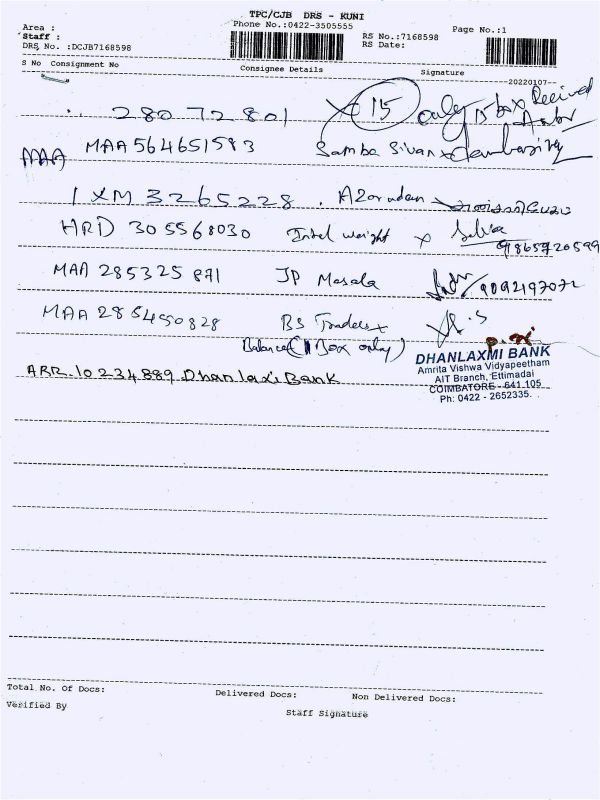 TPC/CJB DRS - KUNI
Area :
Phone No.:0422-3505555
Page No.:1
Staff :
RS No.:7168598
DRS No. :DCJB7168598
RS Date:
S No Consignment No
Consignee Details
Signature
20220107
280 72 801
x 15 only 15 box Received
MAA
MAA 564651583
Samba Sivan x
IXM 3265228
HRD 305568030
Intel weight x
9865720599
MAA 285325871
JP Masala
9092197072
MAA 285450828
BS Traders x
Balance (1 Box only)
ARR.10234889.Dhanlaxi Bank
DHANLAXMI BANK
Amrita Vishwa Vidyapeetham
AIT Branch, Ettimadai
COIMBATORE - 641 105
Ph: 0422 - 2652335.
Total No. Of Docs:
Delivered Docs:
Non Delivered Docs:
Verified By
Staff Signature